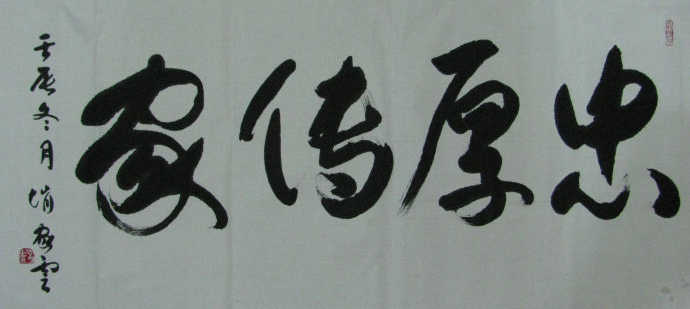 忠厚传家
壬辰冬月